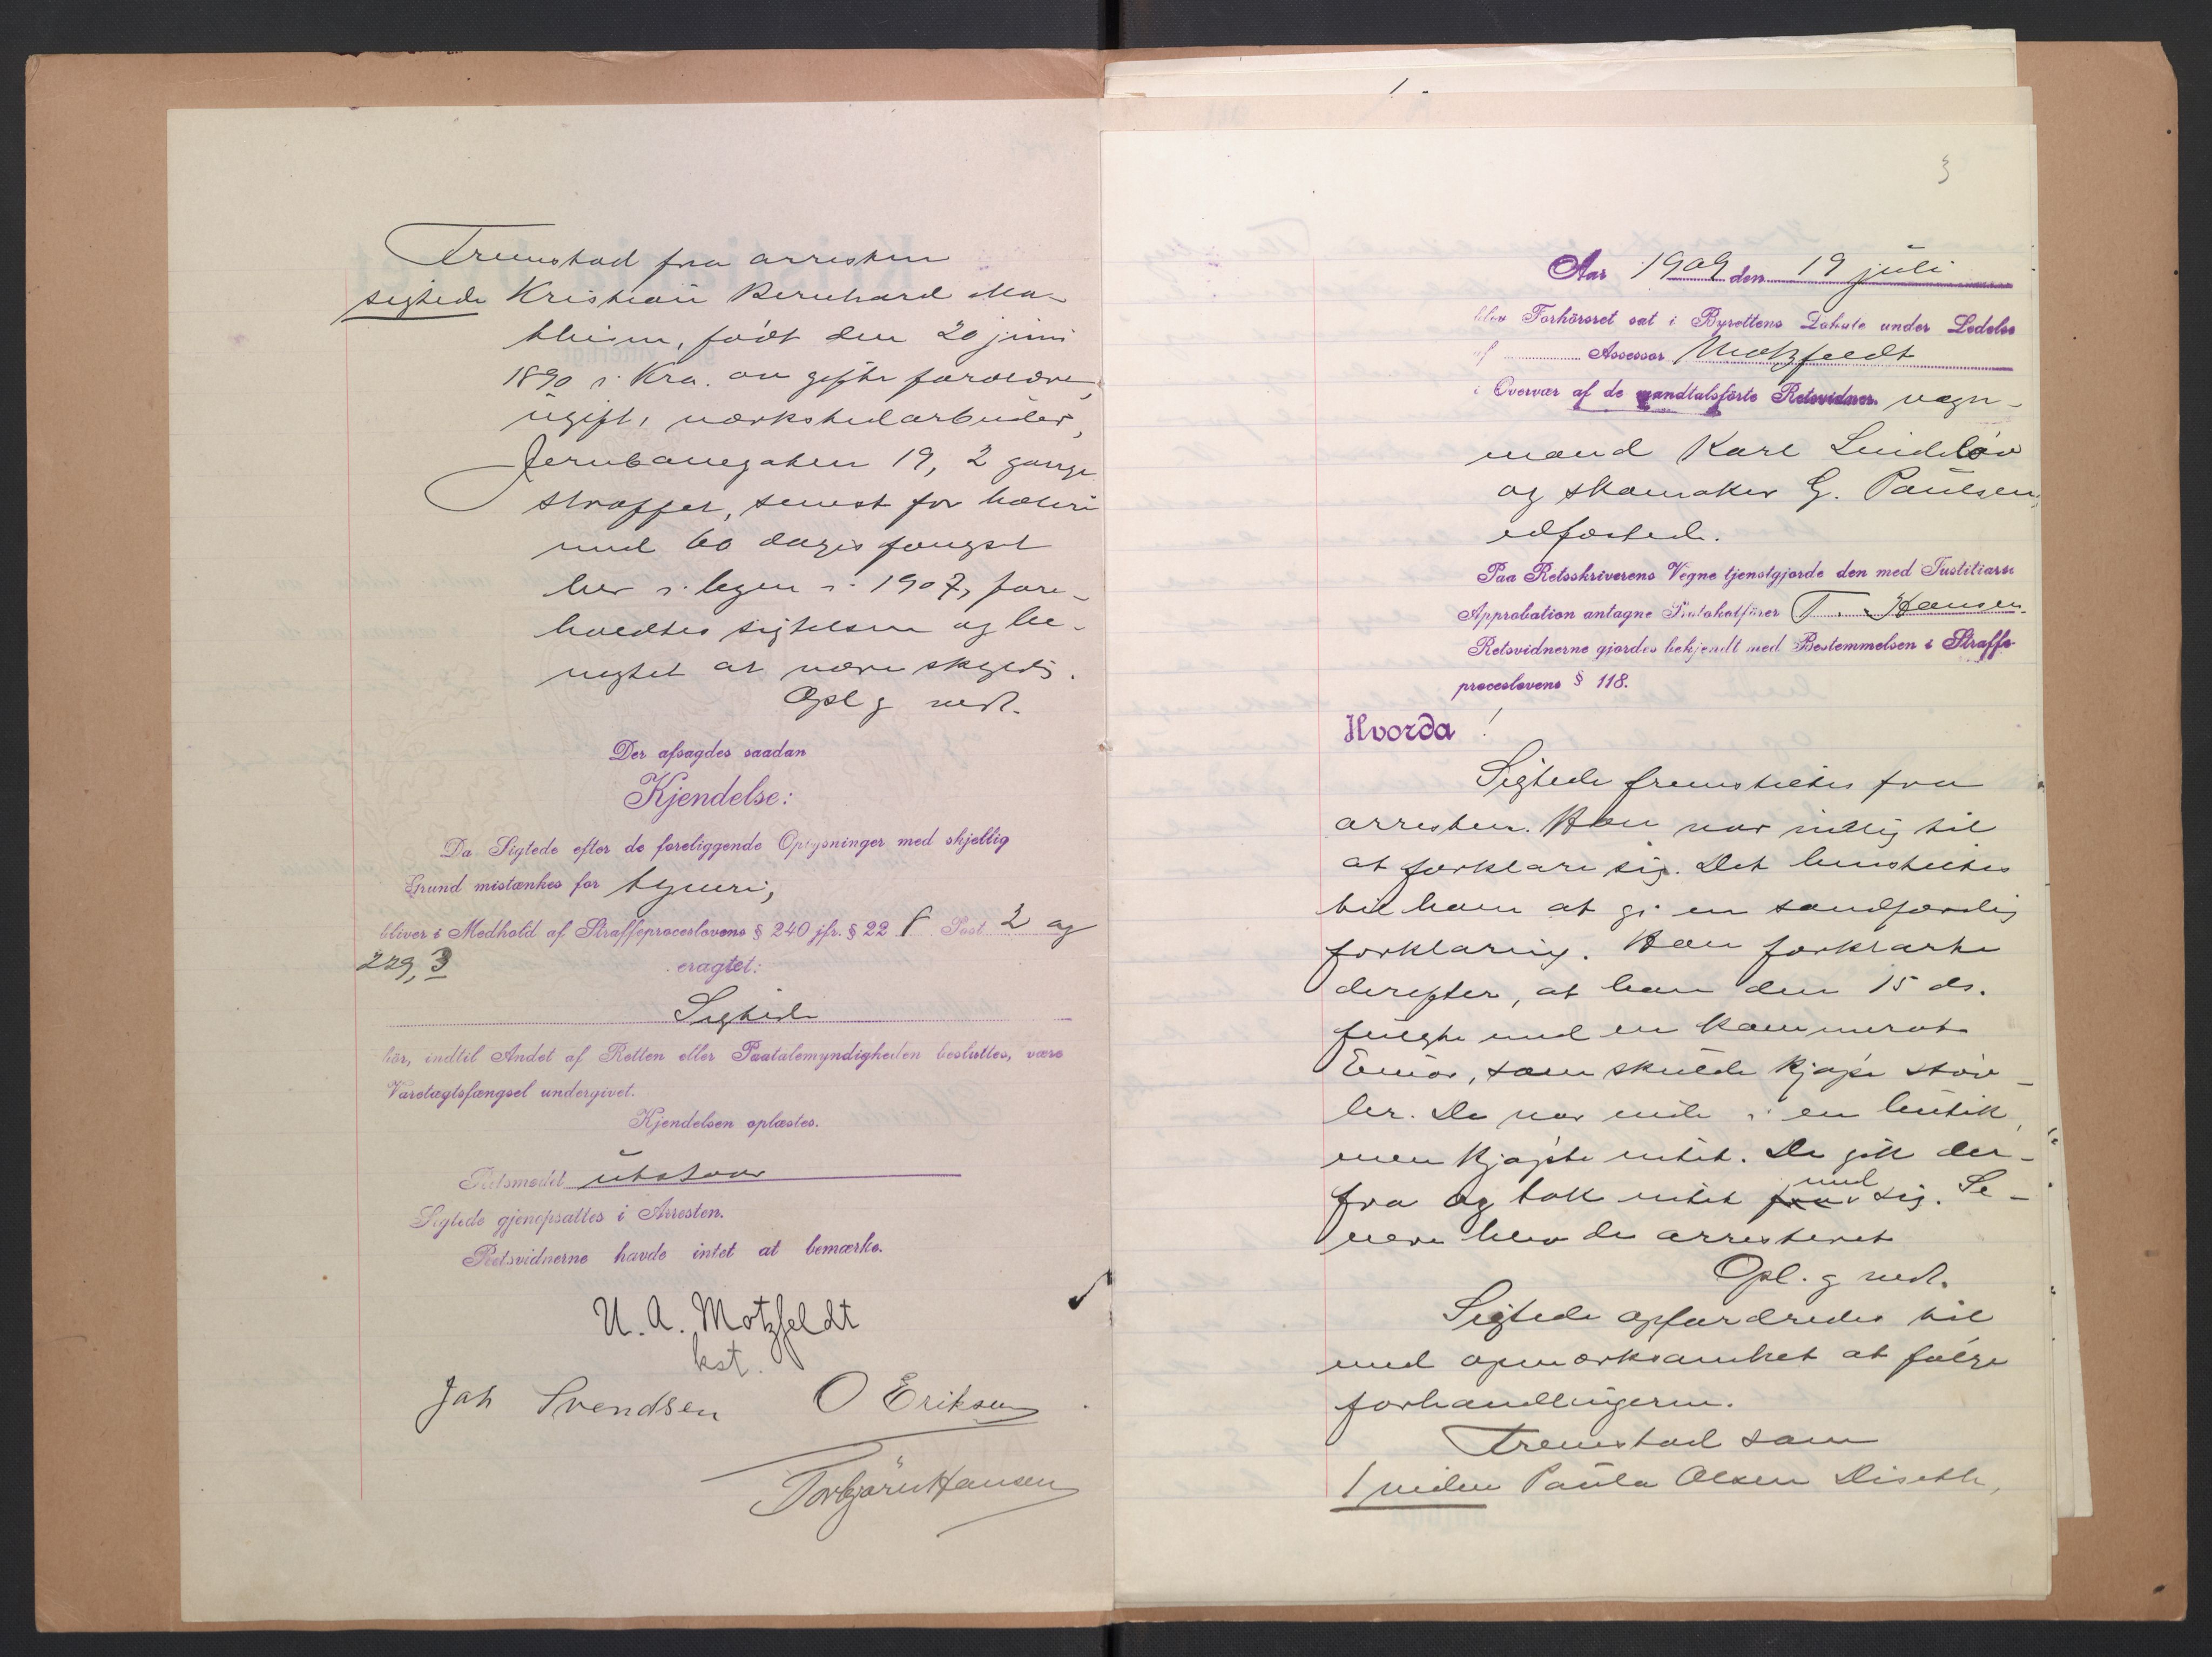 Fremstod fra arresten
sigtede Kristian Bernhard Ma-
thiesen, født den 20 juni
1890 i Kra. av gifte forældre,
ugift, verkstedarbeider,
Jernbanegaten 19, 2 gange
straffet, senest for hæleri
med 60 dages fængsel
her i byen i 1907, fore-
holdtes sigtelsen og be-
negtet at være skyldig.
Opl g vedt.
Der afsagdes saadan
Kjendelse:
Da Sigtede efter de foreliggende Oplysninger med skjellig
Grund mistænkes for tyveri,
bliver i Medhold af Straffeproceslovens § 240 jfr. § 228 Post 2 og
229, 3 eragtet:
Sigtede
bör, indtil Andet af Retten eller Paatalemyndigheden besluttes, være
Varetægtsfængsel undergivet.
Kjendelsen oplæstes.
Retsmødet utsatt
Sigtede gjenopsattes i Arresten.
Retsvidnerne havde intet at bemærke.
U. A. Motzfeldt
kst.
Joh Svendsen O Eriksen
Torbjörn Hansen
1.
3
Aar 1909 den 19 juli
blev Forhörsret sat i Byrettens Lokale under Ledelse
af Assessor Motzfeldt
i Overvær af de mandtalsförte Retsvidner. vogn-
mand Karl Lindløv
og skomaker G. Paulsen,
edfæstede.
Paa Retsskriverens Vegne tjenstgjorde den med Justitiarii
Approbation antagne Protokolförer T. Hansen.
Retsvidnerne gjordes bekjendt med Bestemmelsen i Straffe-
proceslovens § 118.
Hvorda!
Sigtede fremstilles fra
arresten. Han var villig til
at forklare sig. Det henstilles
til ham at gi en sandfærdig
forklaring. Han forklarte
derefter, at han den 15 ds.
fulgte med en kammerat
Einar, som skulde kjøpe støv-
ler. De var inde i en butik,
men kjøpte intet. De gik der-
fra og tok intet med sig. Se-
nere blev de arrestert
Opl. g vedt.
Sigtede opfordredes til
med opmerksomhet at følge
forhandlingerne.
Fremstod som
1 vidne Paula Olsen Diseth,